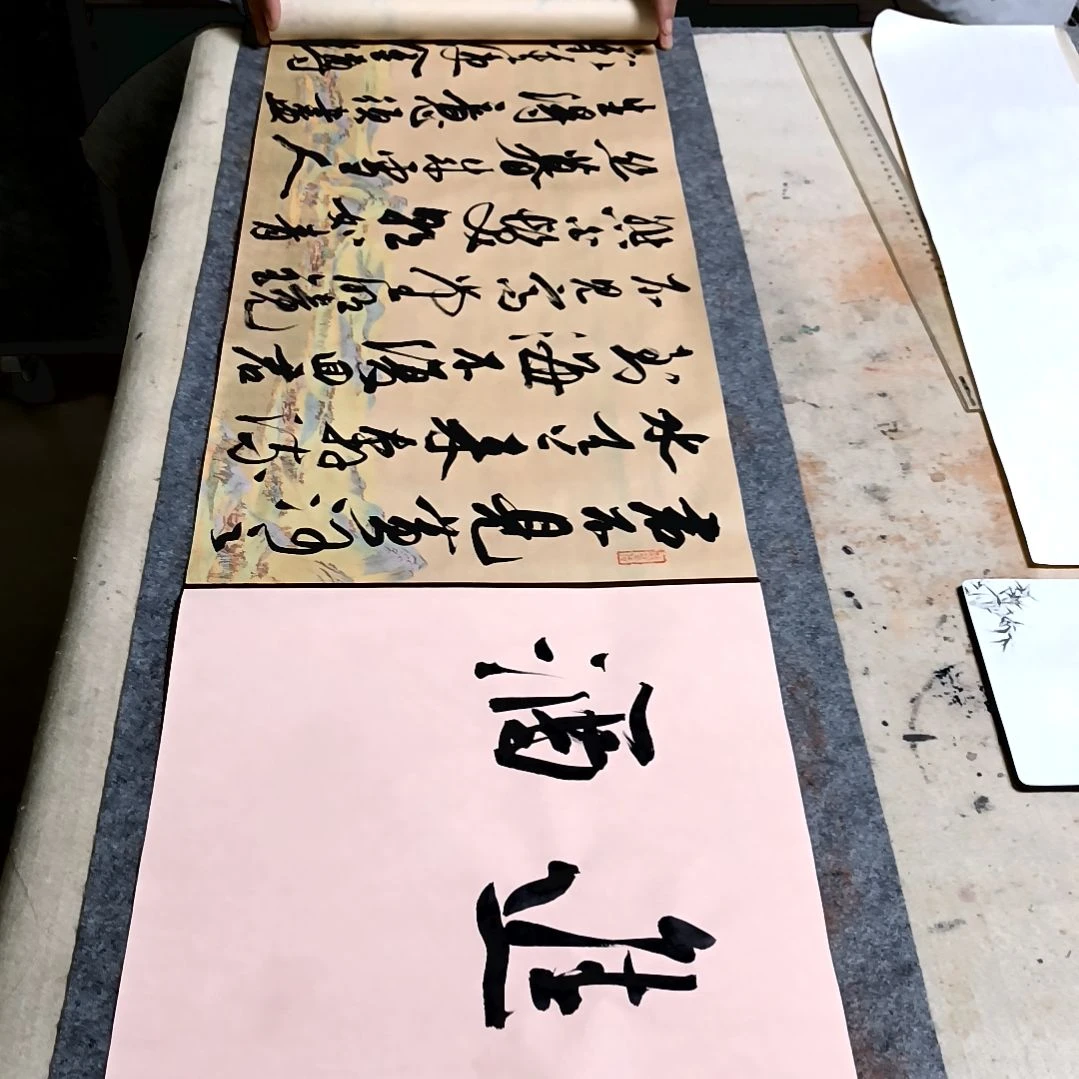 進酒
君不見黃河之
水天上來奔流
到海不復回君
不見高堂明鏡
悲白髮朝如青
絲暮成雪人
生得意須盡
歡莫使金樽